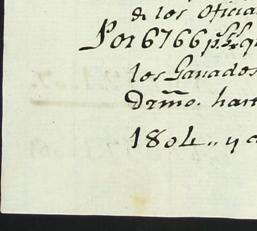 de los Oficia
Por 6766 p.s q
los Ganados
Dzmo. han
1804,, y c